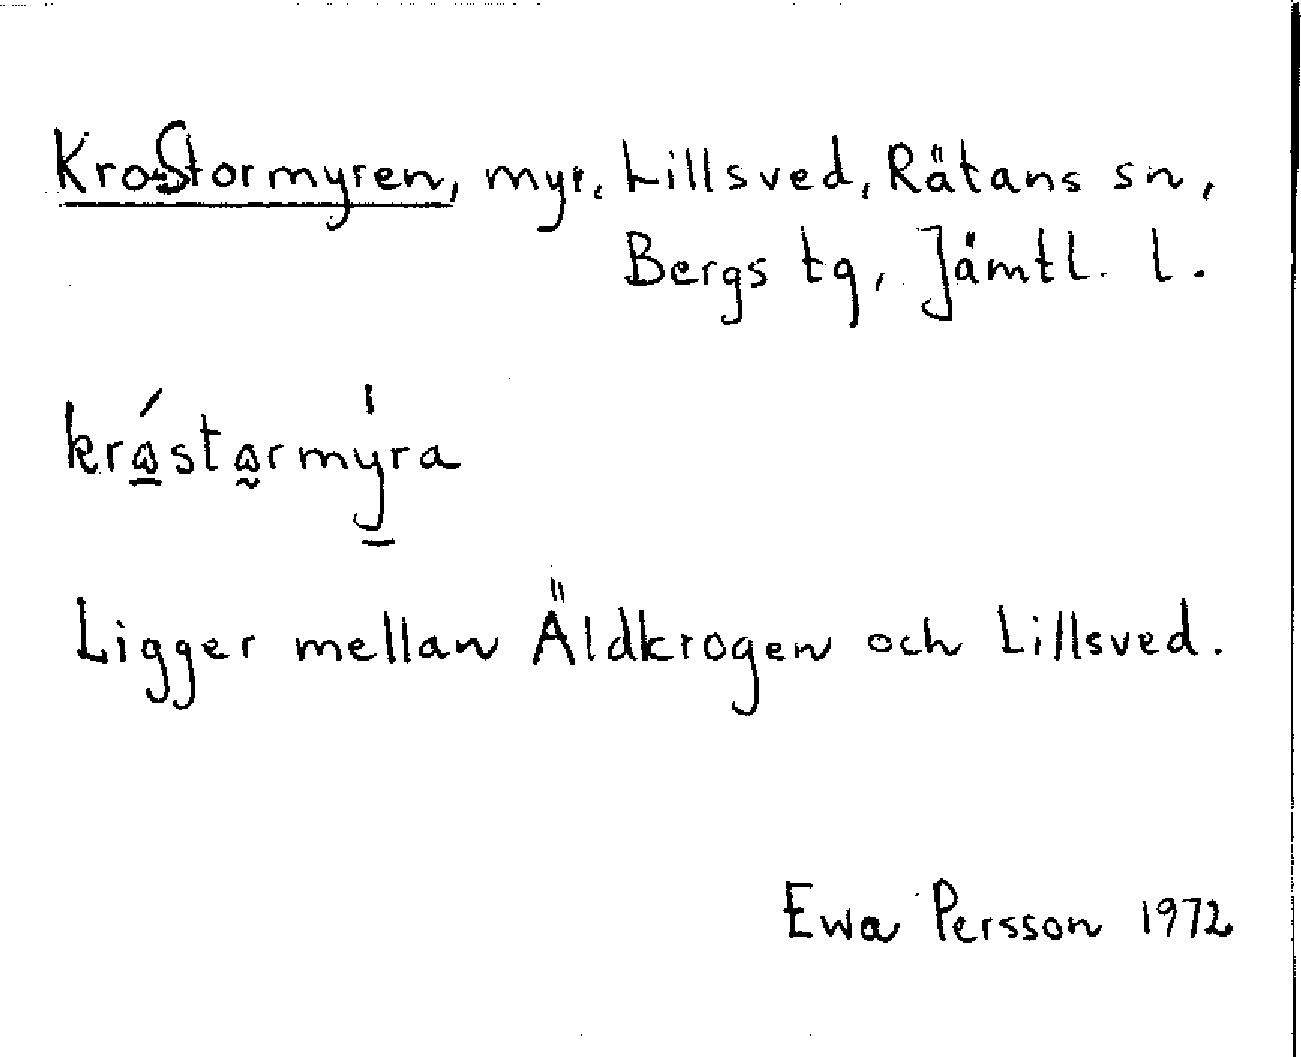 Krostormyren, myr, Lillsved, Rätans sn,
Bergs tg, Jämtl. l.
krɷ́stɷrmy̍ra
Ligger mellan Äldkrogen och Lillsved.
Ewa Persson 1972